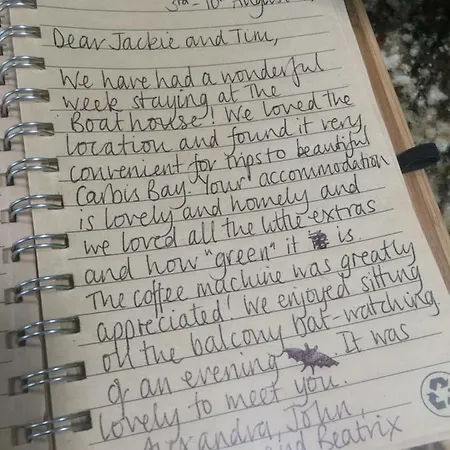 3rd - 10th August
Dear Jackie and Tim,
We have had a wonderful
week staying at The
Boathouse! We loved the
location and found it very
convenient for trips to beautiful
Carbis Bay. Your accommodation
is lovely and homely and
we loved all the little extras
and how "green" it is.
The coffee machine was greatly
appreciated! We enjoyed sitting
on the balcony bat-watching
of an evening. It was
lovely to meet you.
Alexandra, John,
and Beatrix